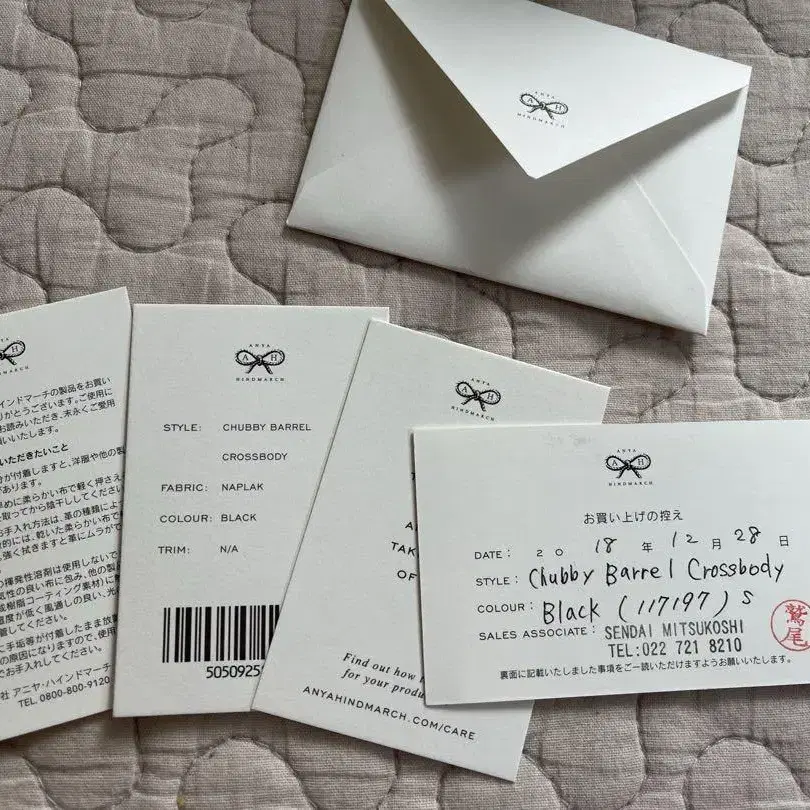 ANYA
A H
HINDMARCH
インドマーチの製品をお買い
りがとうございます。ご使用に
お読みいただき、末永くご愛用
いいたします。
いただきたいこと
分が付着しますと、洋服や他の製
があります。
早めに柔らかい布で軽く押さえ
を取ってから陰干ししてください
お手入れ方法は、革の種類によ
的には、乾いた柔らかい布で
強く拭きますと革にムラがで
揮発性溶剤は使用しないで
気性の良い布に包み、他の製品
成樹脂コーティング素材)に
温度が低く風通しの良い、光
管してください。
に手垢等が付着したまま放置
の原因になりますので、使用
でお手入れしてください。
社 アニヤ・ハインドマーチ
TEL 0800-800-9120
ANYA
A H
HINDMARCH
STYLE: CHUBBY BARREL
CROSSBODY
FABRIC: NAPLAK
COLOUR: BLACK
TRIM: N/A
5050925
ANYA
A H
HINDMARCH
TAK
OF
Find out how
for your produ
ANYAHINDMARCH.COM/CARE
ANYA
A H
HINDMARCH
お買い上げの控え
DATE: 2018年12月28日
STYLE: Chubby Barrel Crossbody
COLOUR: Black (117197) S
SALES ASSOCIATE: SENDAI MITSUKOSHI
TEL:022 721 8210
鷲尾
裏面に記載いたしました事項をご一読いただけますようお願いいたします。